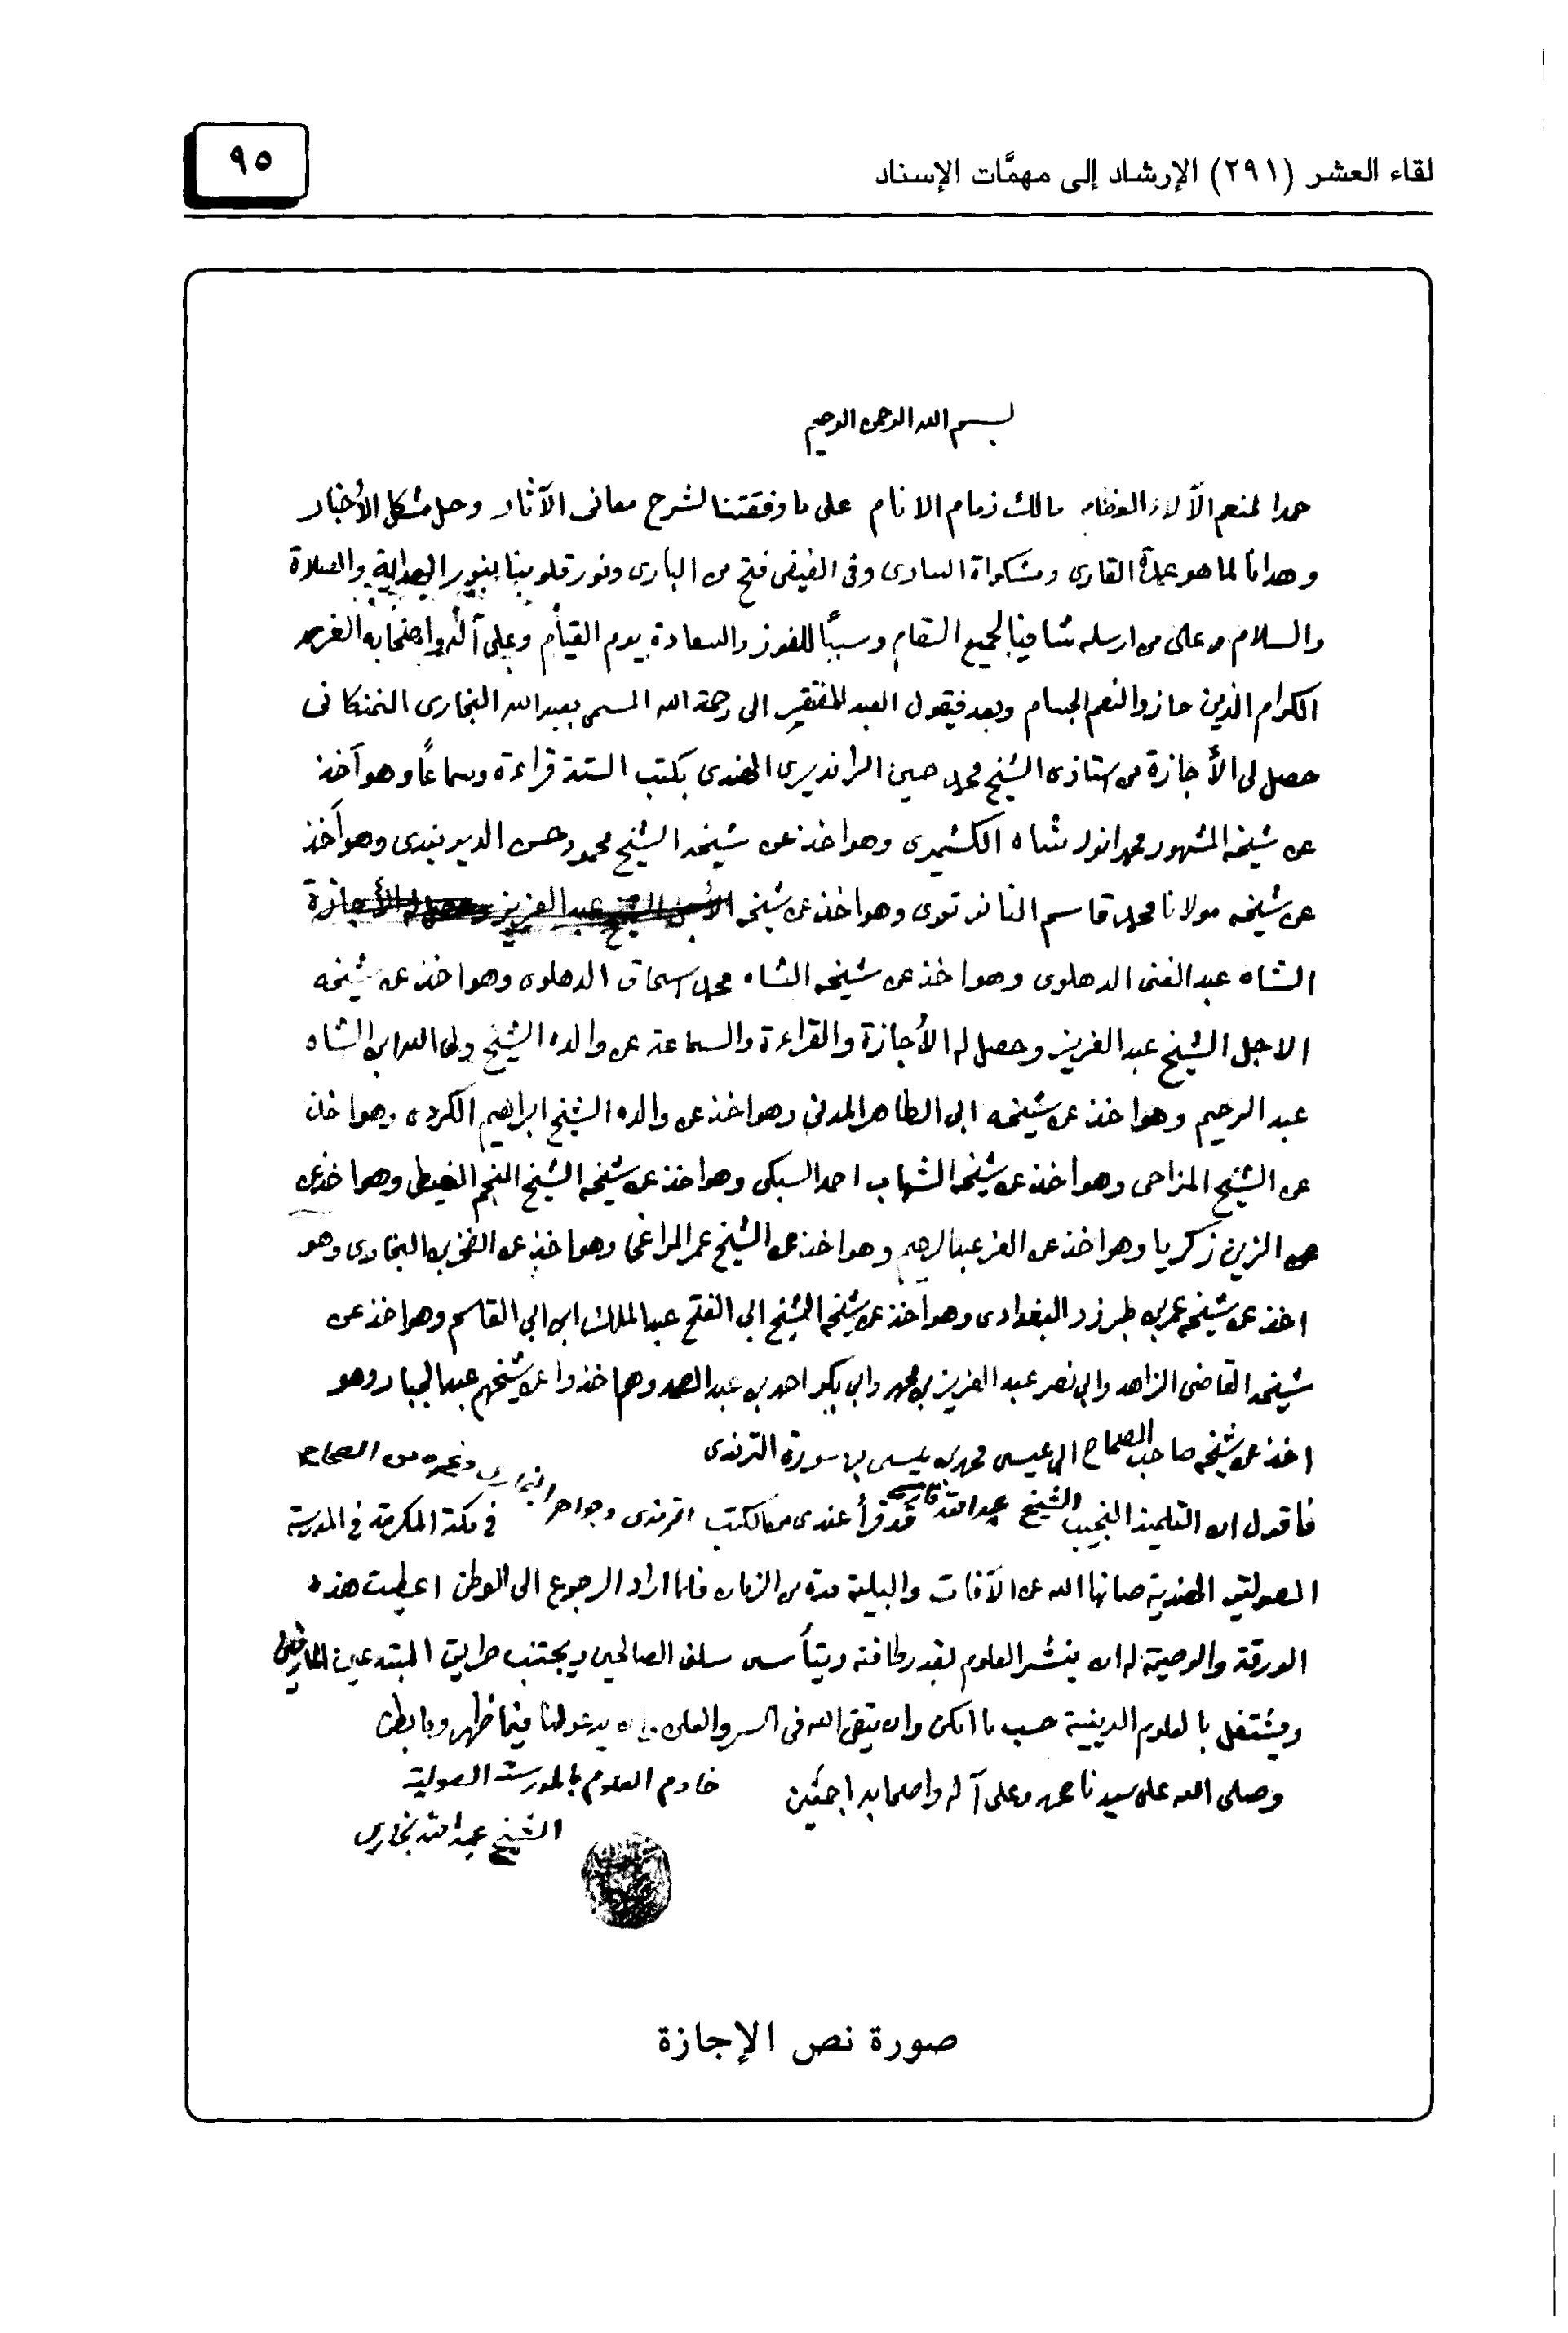 لقاء العشر (٢٩١) الإرشاد إلى مهمَّات الإسناد
٩٥
بسم الله الرحمن الرحيم
حمدا لمنعم الآلاء العظام مالك زمام الانام على ما وفقتنا لشرح معانى الآثار وحل مشكل الأخبار
وهدانا لما هو عمدة القارى ومشكواة السارى وفى الفيض فتح من البارى ونور قلوبنا بنور الهداية والصلاة
والسلام على من ارسله شافيا لجميع السقام وسببًا للفوز والسعادة يوم القيام وعلى آله واصحابه الغر
الكرام الذين حازوا النعم الجسام وبعد فيقول العبد المفتقر الى رحمة الله المسمى بعبد الله البخارى النمنكانى
حصل لى الأجازة من استاذى الشيخ محمد حسين الرانديرى الهندى بكتب الستة قراءة وسماعًا وهو آخذ
عن شيخه المشهور محمد انور شاه الكشميرى وهو اخذ عن شيخه الشيخ محمود حسن الديوبندى وهو آخذ
عن شيخه مولانا محمد قاسم النانوتوى وهو اخذ عن شيخه الأجل الشيخ عبد العزيز وحصل له الأجازة
الشاه عبد الغنى الدهلوى وهو اخذ عن شيخه الشاه محمد اسحاق الدهلوى وهو اخذ عن شيخه
الاجل الشيخ عبد العزيز وحصل له الأجازة والقراءة والسماعة عن والده الشيخ ولى الله ابن الشاه
عبد الرحيم وهو اخذ عن شيخه ابى الطاهر المدنى وهو اخذ عن والده الشيخ ابراهيم الكردى وهو اخذ
عن الشيخ المزاحى وهو اخذ عن شيخه الشهاب احمد السبكى وهو اخذ عن شيخه الشيخ النجم الغيطى وهو اخذ عن
عن الزين زكريا وهو اخذ عن العز عبد الرحيم وهو اخذ عن الشيخ عمر المراغى وهو اخذ عن الفخر بن البخارى وهو
اخذ عن شيخه عمر بن طبرزد البغدادى وهو اخذ عن شيخه الشيخ ابى الفتح عبد الملك ابن ابى القاسم وهو اخذ عن
شيخه القاضى الزاهد وابى نصر عبد العزيز بن محمد وابى بكر احمد بن عبد الصمد وهم اخذوا عن شيخهم عبد الجبار وهو
اخذ عن شيخه صاحب الصحاح ابى عيسى محمد بن عيسى بن سورة الترمذى
فاقول ان التلميذ النجيب الشيخ عبد الله قد قرأ عندى من الكتب الترمذى وجواهر البخارى وغيره من الصحاح فى مكة المكرمة فى المدرسة
الصولتية الهندية صانها الله عن الآفات والبلية مدة من الزمان فلما اراد الرجوع الى الوطن اعطيت هذه
الورقة والوصية له ان ينشر العلوم بقدر طاقته ويتأسى سلف الصالحين ويجتنب طريق المبتدعين المارقين
ويشتغل بالعلوم الدينية حسب ما امكن وان يتقى الله فى السر والعلن وان يدعو لنا فيما ظهر وما بطن
وصلى الله على سيدنا محمد وعلى آله واصحابه اجمعين
خادم العلوم بالمدرسة الصولتية
الشيخ عبد الله بخارى
صورة نص الإجازة